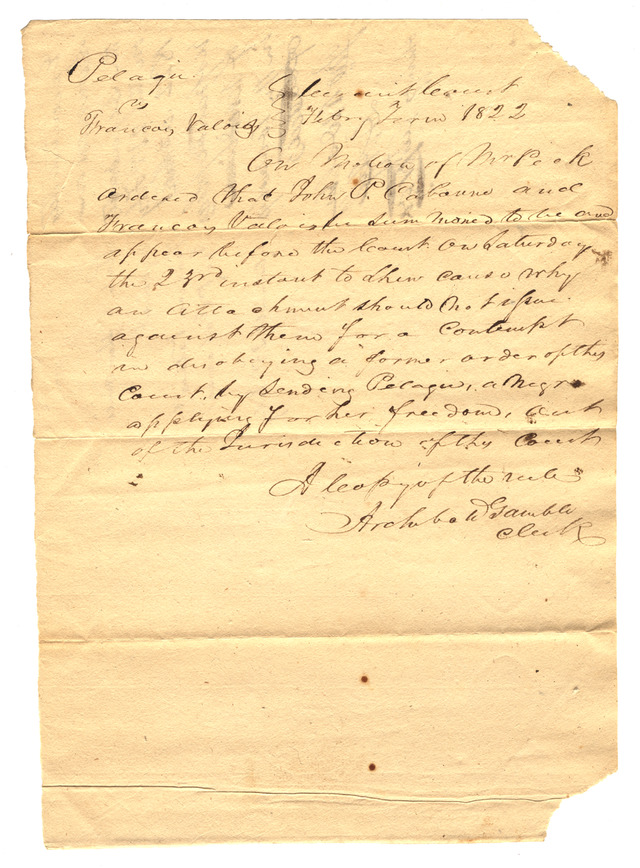 Pelagie
vs
Francois Valois } Circuit Court
Febry Term 1822
On Motion of Mr Peck
ordered that John P. Cabanne and
Francois Valois be summoned to be and
appear before the Court on Saturday
the 23rd instant to shew cause why
an attachment should not issue
against them for a contempt
in disobeying a former order of this
Court, by sending Pelagie, a negro
applying for her freedom, out
of the Jurisdiction of this Court
A copy of the rule
Archibald Gamble
Clerk